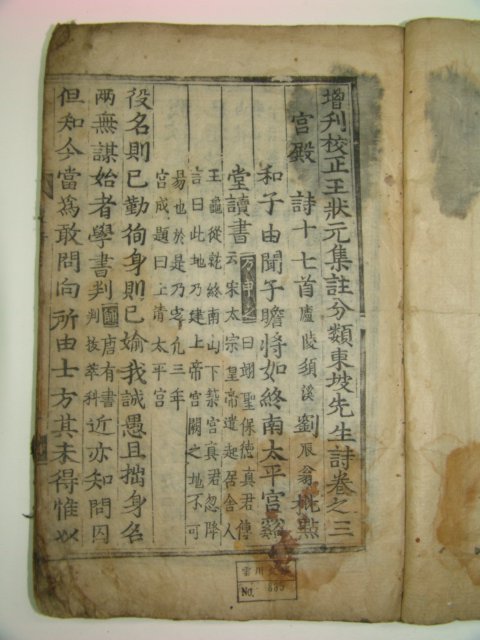 增刊校正王狀元集註分類東坡先生詩卷之三
宮殿 詩十七首 廬陵須溪劉辰翁批點
和子由聞子瞻將如終南太平宮谿
堂讀書 曰翊聖保德真君傳
云宋太宗皇帝遣起居舍人
王龜從就終南山下築宮真君忽降
言曰此地乃建上帝宮闕之地不可
易也於是乃定凡三年
宮成題曰上清太平宮
役名則已勤徇身則已媮我誠愚且拙身名
兩無謀始者學書判 唐有書
判拔萃科 近亦知問囚
但知今當為敢問向所由士方其未得惟以
No.